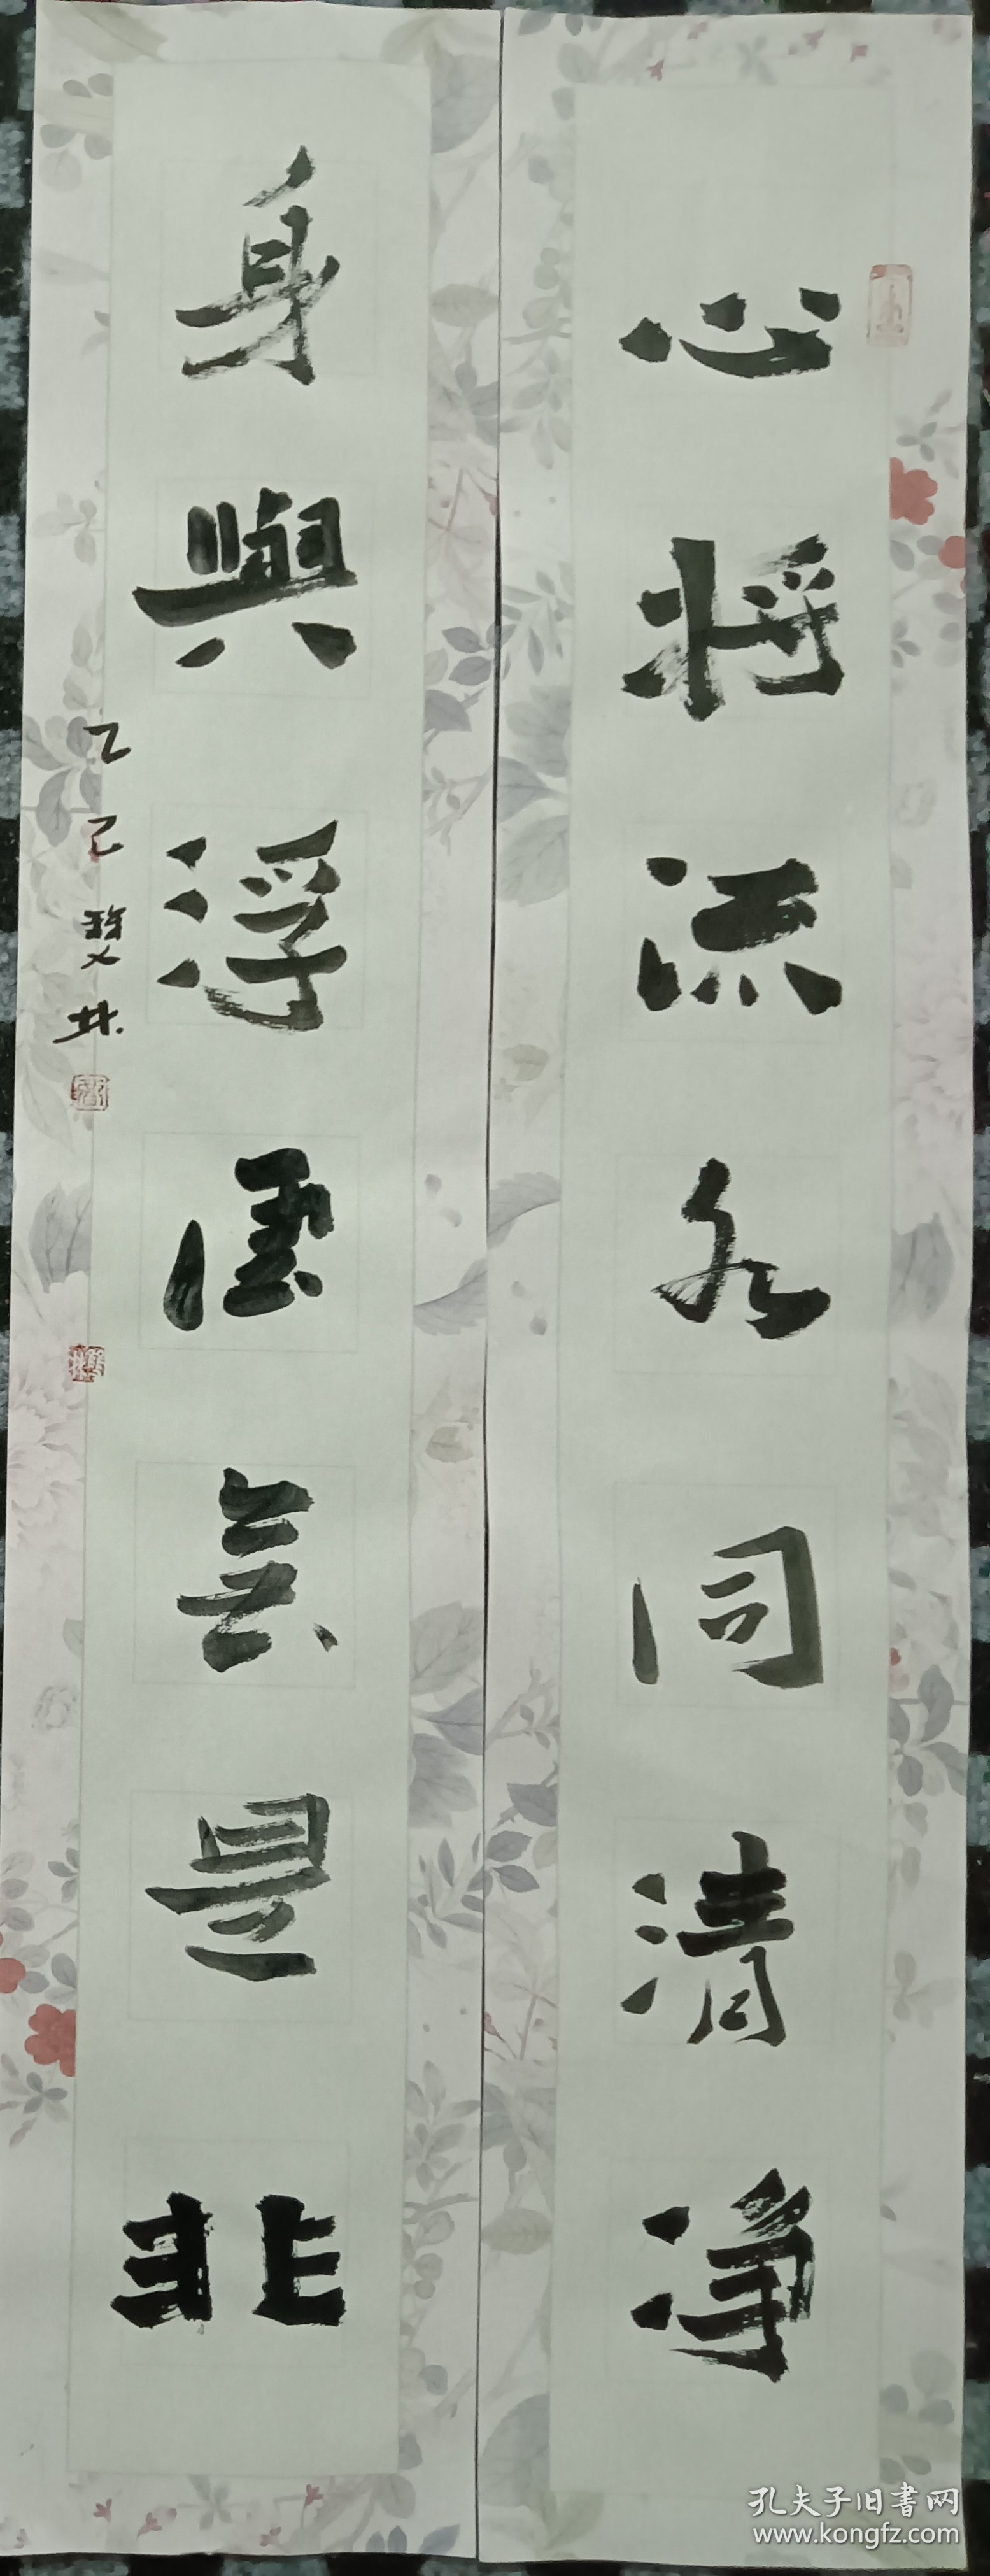 心将流水同清净
身與浮雲無是非
乙巳
孔夫子旧書网
www.kongfz.com